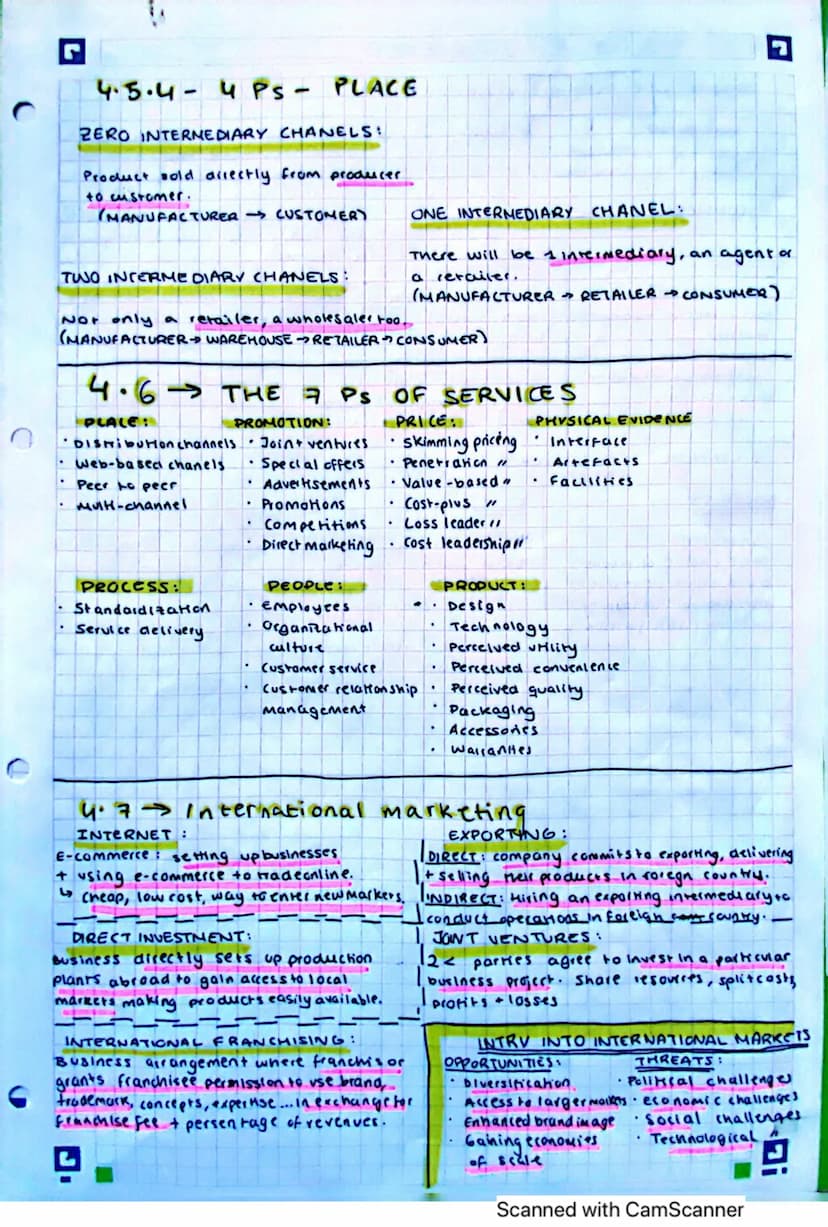 4.5.4 - 4 Ps - PLACE
ZERO INTERMEDIARY CHANELS:
Product sold directly from producer
to customer.
(MANUFACTURER → CUSTOMER)
ONE INTERMEDIARY CHANEL:
There will be 1 intermediary, an agent or
a retailer.
(MANUFACTURER → RETAILER → CONSUMER)
TWO INTERMEDIARY CHANELS:
Not only a retailer, a wholesaler too.
(MANUFACTURER → WAREHOUSE → RETAILER → CONSUMER)
4.6 → THE 7 Ps OF SERVICES
PLACE:
· Distribution channels
· Web-based chanels
· Peer to peer
· Multi-channel
PROMOTION:
· Joint ventures
· Special offers
· Advertisements
· Promotions
· Competitions
· Direct marketing
PRICE:
· Skimming pricing
· Penetration "
· Value-based "
· Cost-plus "
· Loss leader "
· Cost leadership "
PHYSICAL EVIDENCE
· Interface
· Artefacts
· Facilities
PROCESS:
· Standardization
· Service delivery
PEOPLE:
· Employees
· Organizational
culture
· Customer service
· Customer relationship
management
PRODUCT:
· Design
· Technology
· Perceived utility
· Perceived convenience
· Perceived quality
· Packaging
· Accessories
· Warranties
4.7 → International marketing
INTERNET:
E-commerce: setting up businesses
+ using e-commerce to trade online.
↳ cheap, low cost, way to enter new markets.
EXPORTING:
DIRECT: company commits to exporting, delivering
+ selling their products in foreign country.
INDIRECT: Hiring an exporting intermediary to
conduct operations in foreign country.
DIRECT INVESTMENT:
Business directly sets up production
plants abroad to gain access to local
markets making products easily available.
JOINT VENTURES:
2< parties agree to invest in a particular
business project. Share resources, split costs,
profits + losses
INTERNATIONAL FRANCHISING:
Business arrangement where franchisor
grants franchisee permission to use brand,
trademark, concepts, expertise... in exchange for
franchise fee + persentage of revenues.
INTRY INTO INTERNATIONAL MARKETS
OPPORTUNITIES:
· Diversification
· Access to larger markets
· Enhanced brand image
· Gaining economies
of scale
THREATS:
· Political challenges
· economic challenges
· Social challenges
· Technological "
Scanned with CamScanner